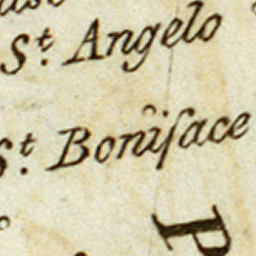 St. Angelo
St. Boniface
P